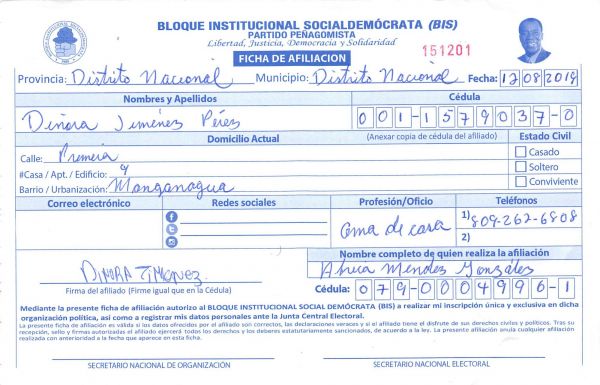 BLOQUE INSTITUCIONAL SOCIALDEMÓCRATA (BIS)
PARTIDO PEÑAGOMISTA
Libertad, Justicia, Democracia y Solidaridad
151201
FICHA DE AFILIACION
Provincia: Distrito Nacional Municipio: Distrito Nacional Fecha: 12 08 2019
Nombres y Apellidos Cédula
Dinora Jiménez Pérez 001-1579037-0
Domicilio Actual (Anexar copia de cédula del afiliado) Estado Civil
Calle: Primera Casado
#Casa / Apt. / Edificio: 9 Soltero
Barrio / Urbanización: Manganagua Conviviente
Correo electrónico Redes sociales Profesión/Oficio Teléfonos
Ama de casa 1) 809-262-6808
2)
Nombre completo de quien realiza la afiliación
DINORA JIMENEZ Mendez González
Firma del afiliado (Firme igual que en la Cédula) Cédula: 079-0004996-1
Mediante la presente ficha de afiliación autorizo al BLOQUE INSTITUCIONAL SOCIAL DEMÓCRATA (BIS) a realizar mi inscripción única y exclusiva en dicha
organización política, así como a registrar mis datos personales ante la Junta Central Electoral.
La presente ficha de afiliación es válida si los datos ofrecidos por el afiliado son correctos, las declaraciones veraces y si el afiliado tiene el disfrute de sus derechos civiles y políticos. Tras su
recepción, sello y firmas autorizadas el afiliado ejercerá todos los derechos y los deberes estatutariamente sancionados, de acuerdo a la ley. La presente afiliación anula cualquier afiliación
realizada con anterioridad a la fecha que aparece en esta ficha.
SECRETARIO NACIONAL DE ORGANIZACIÓN SECRETARIO NACIONAL ELECTORAL